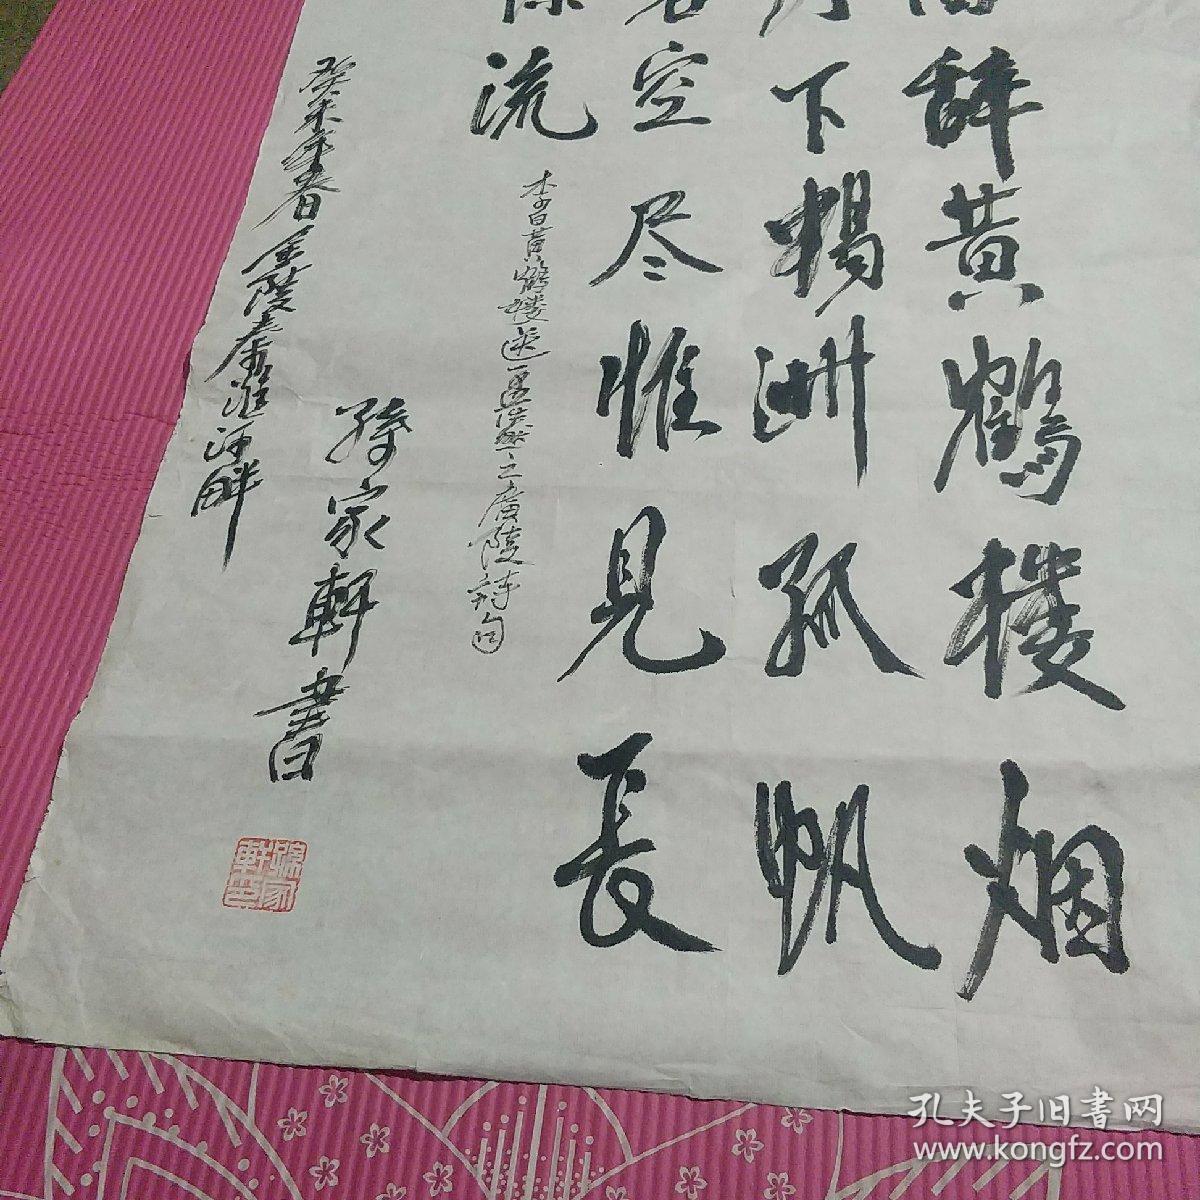 辞黄鶴楼烟
月下揚洲孤帆
空尽惟見長
流
李白黄鶴楼送孟浩然之廣陵詩句
癸未年春金陵秦淮河畔
孫家軒書
孫家軒印
孔夫子旧書网
www.kongfz.com